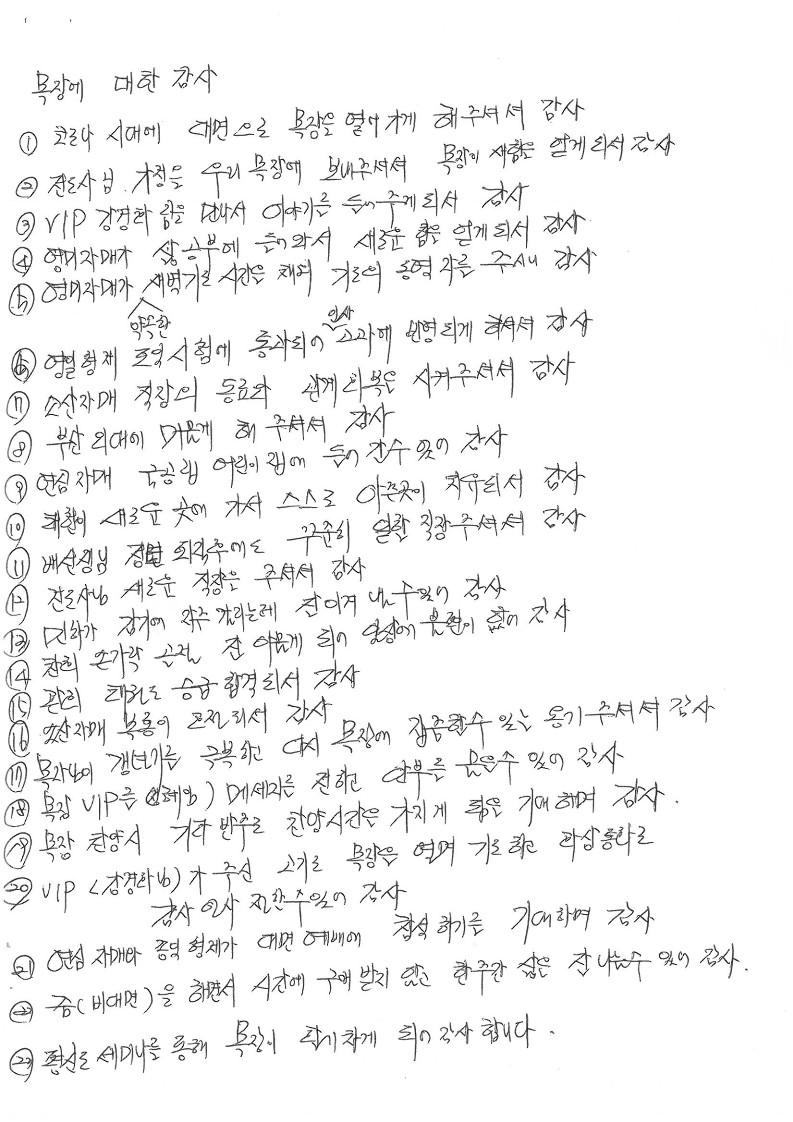 목장에 대한 감사
① 코로나 시대에 대면으로 목장을 열어가게 해주셔서 감사
② 전도사님 가정을 우리 목장에 보내주셔서 목장이 새힘을 얻게되서 감사
③ VIP 강경화 님을 만나서 이야기를 들어주게되서 감사
④ 영미자매가 삶공부에 들어와서 새로운 힘을 얻게되서 감사
⑤ 영미자매가 새벽기도 시간을 채워 기도의 동역자를 주시니 감사
약속한 인사
⑥ 영일형제 토익시험에 통과되어 고과에 반영되게 하셔서 감사
⑦ 소산자매 직장의 동료와 관계회복을 시켜주셔서 감사
⑧ 부산 외대에 머물게 해 주셔서 감사
⑨ 연심자매 국공립 어린이집에 들어 갈수 있어 감사
⑩ 새로운 곳에 가서 스스로 아픈곳이 치유되서 감사
⑪ 배선생님 정년 퇴직후에도 꾸준히 일할 직장주셔서 감사
⑫ 전도사님 새로운 직장을 주셔서 감사
⑬ 민하가 감기에 자주 걸리는데 잘 이겨 낼수있어 감사
⑭ 손가락 골절 잘 아물게 되어 일상에 불편이 없어 감사
⑮ 관리 태권도 승급 합격되서 감사
⑯ 소산자매 복통이 호전되서 감사
⑰ 목자님이 갱년기를 극복하고 다시 목장에 집중할수 있는 용기주셔서 감사
⑱ 목장 VIP를 ) 메세지를 전하고 안부를 물을수 있어 감사
⑲ 목장 찬양시 기타 반주로 찬양시간을 가지게 됨을 기대하며 감사.
⑳ VIP (강경화님)가 주신 고기로 목장을 열며 기도하고 화상통화로
감사 인사 전할수있어 감사
㉑ 연심 자매와 종덕 형제가 대면 예배에 참석 하기를 기대하며 감사
㉒ 줌(비대면)을 하면서 시간에 구애 받지 않고 한주간 삶을 잘 나눌수 있어 감사.
㉓ 평신도 세미나를 통해 목장이 활기차게 되어 감사 합니다.